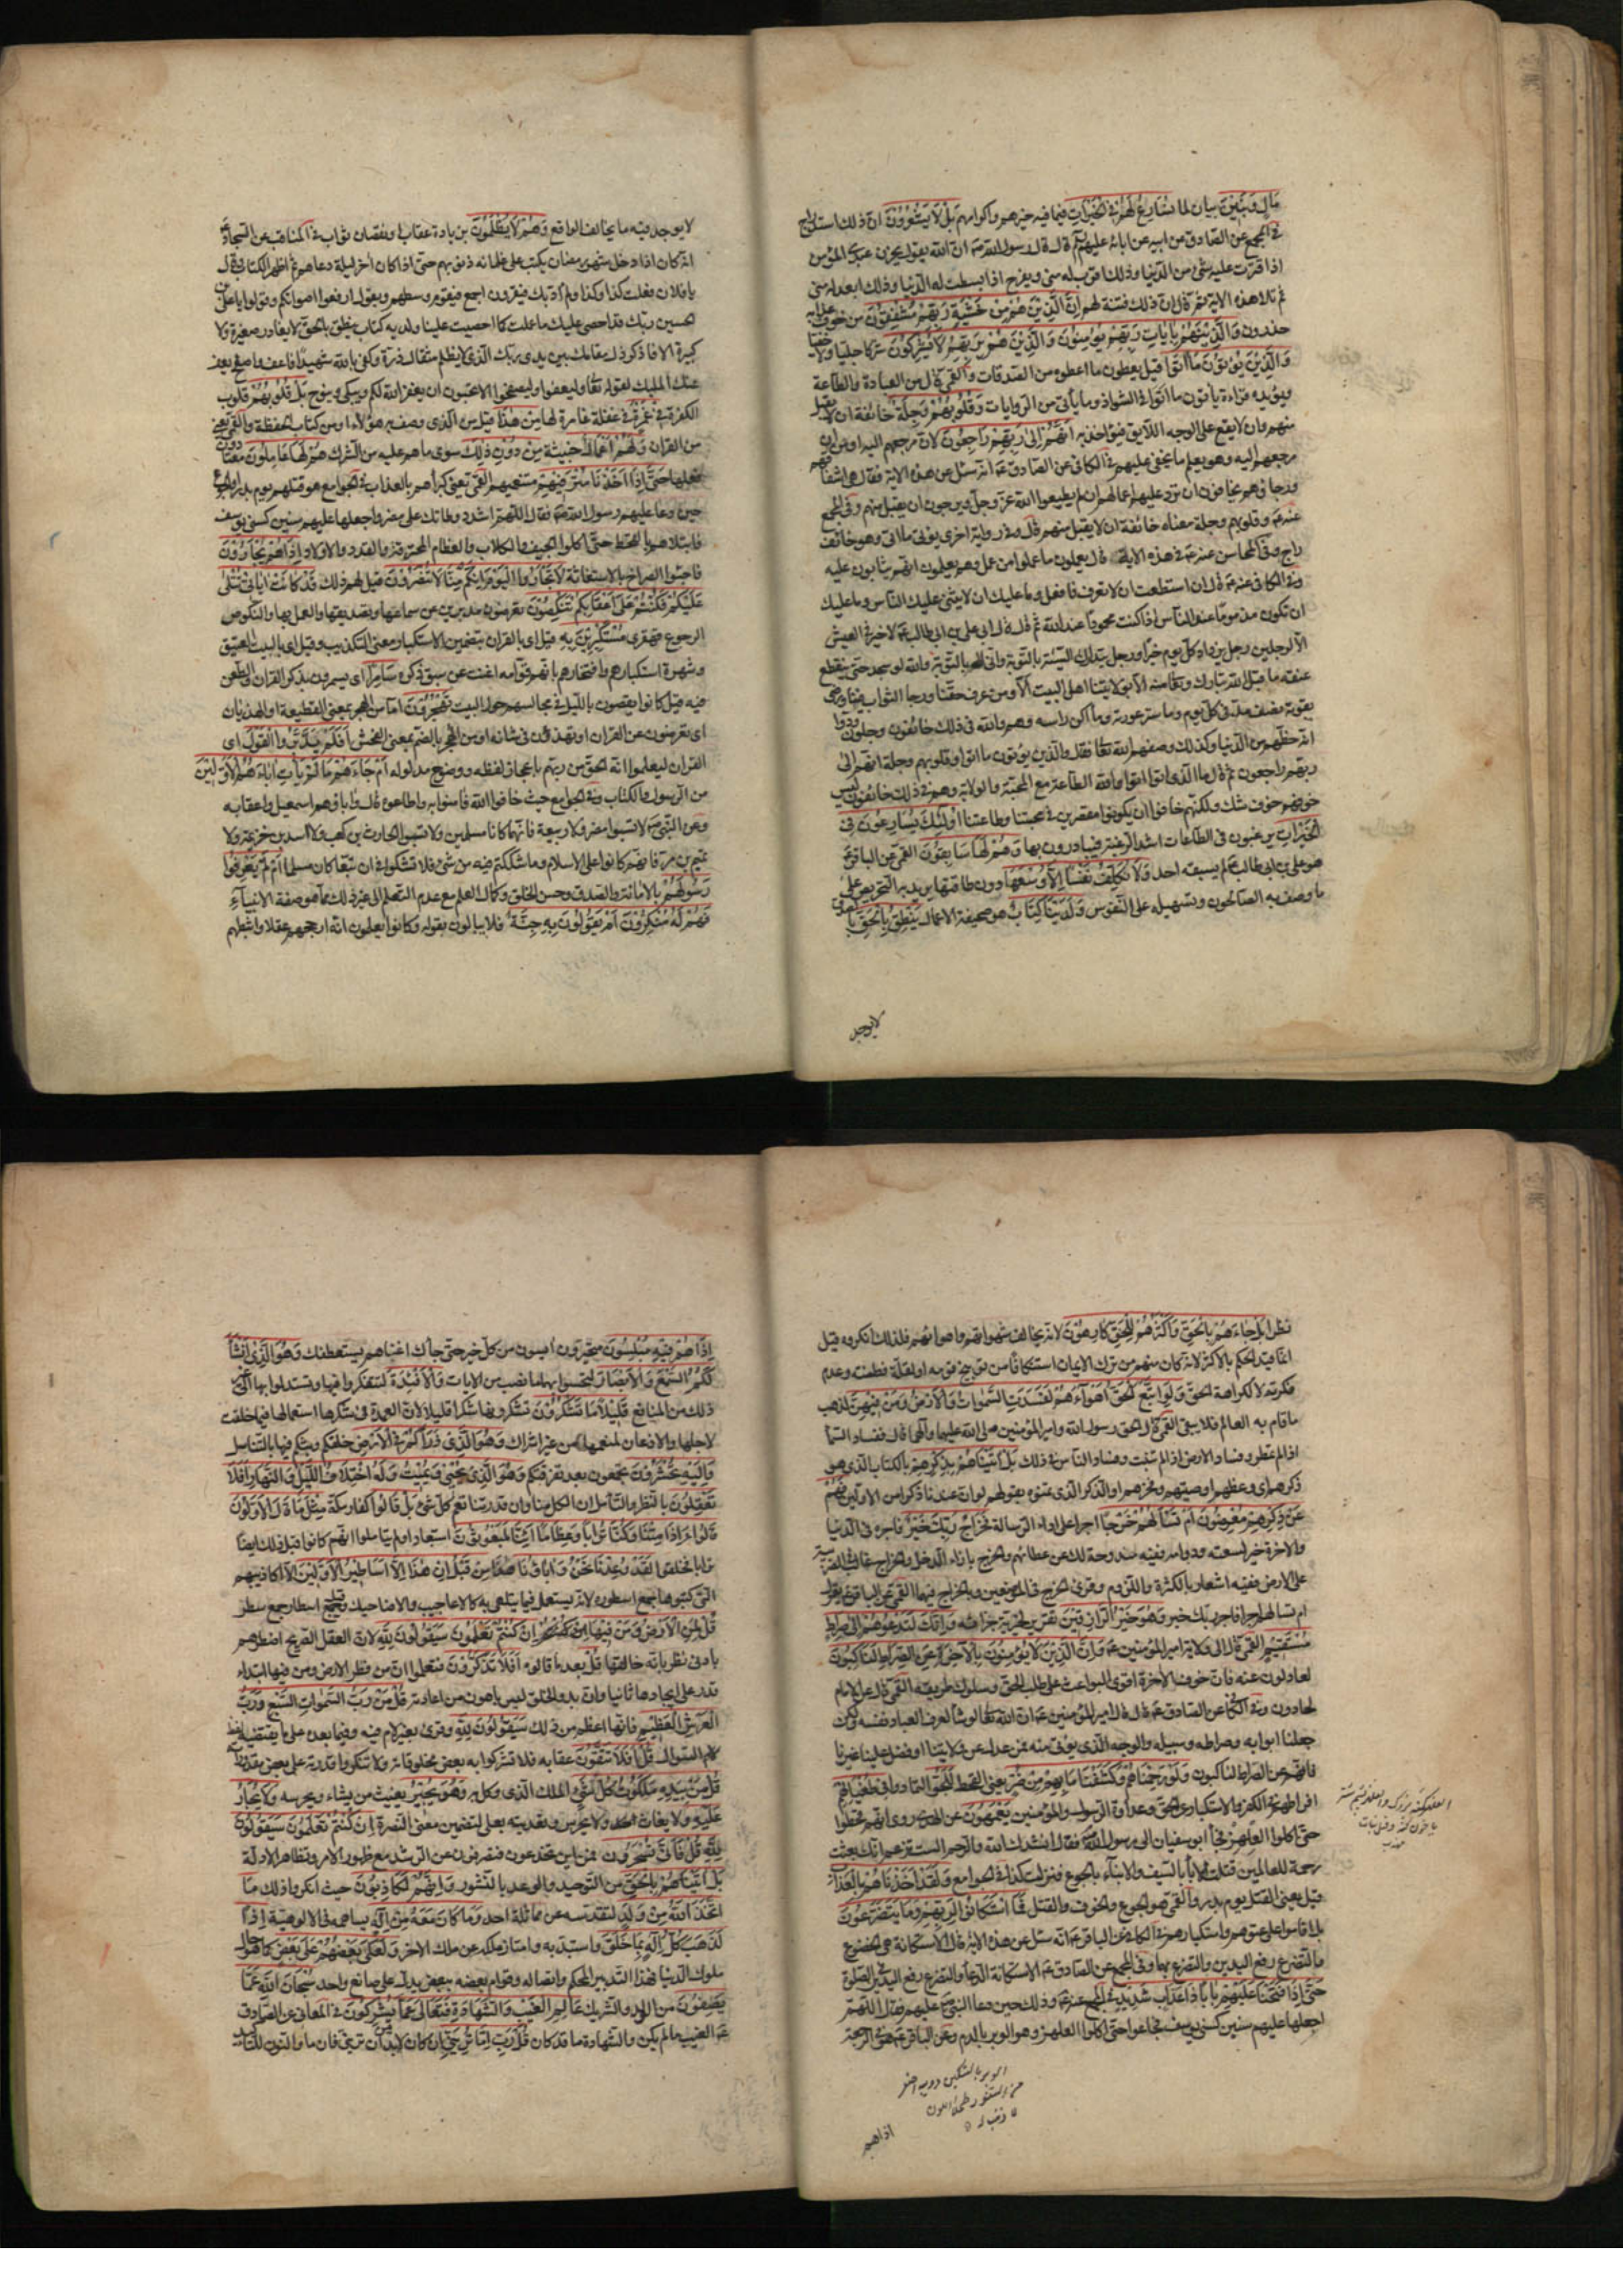 مَالٍ وَبَنِينَ بيان لما نُسَارِعُ لَهُمْ فِي الْخَيْرَاتِ فيما فيه خيرهم واكرامهم بَلْ لَا يَشْعُرُونَ انّ ذلك استدراج
في المجمع عن الصّادق عن ابيه عن ابائه عليهم قال قال رسول الله انّ الله يقول يحزن عبدي المؤمن
اذا قترت عليه شئ من الدّنيا وذلك اقرب له منى ويفرح اذا بسطت له الدّنيا وذلك ابعد له منى
ثم تلا هذه الاية ثم قال ان ذلك فتنة لهم إِنَّ الَّذِينَ هُمْ مِنْ خَشْيَةِ رَبِّهِمْ مُشْفِقُونَ من خوف عذابه
حذرون وَالَّذِينَ هُمْ بِآيَاتِ رَبِّهِمْ يُؤْمِنُونَ وَالَّذِينَ هُمْ بِرَبِّهِمْ لَا يُشْرِكُونَ شركا جليا ولا خفيا
وَالَّذِينَ يُؤْتُونَ مَا آتَوْا قيل يعطون ما اعطوه من الصّدقات والقمى قال من العبادة والطّاعة
ويؤيده قراءة يأتون ما اتوا في الشواذ وما يأتي من الروايات وَقُلُوبُهُمْ وَجِلَةٌ خائفة ان لا يقبل
منهم وان لا يقع على الوجه اللايق فيؤاخذ به أَنَّهُمْ إِلَى رَبِّهِمْ رَاجِعُونَ لانّ مرجعهم اليه او من ان
مرجعهم اليه وهو يعلم ما يخفى عليهم في الكافي عن الصّادق انه سئل عن هذه الاية فقال هي اشفاقهم
ورجاؤهم يخافون ان تردّ عليهم اعمالهم ان لم يطيعوا الله عزّ وجلّ ويرجون ان يقبل منهم وفي المجمع
عنه وقلوبهم وجلة معناه خائفة ان لا يقبل منهم قال وفي رواية اخرى يؤتى ما اتى وهو خائف
راج وفي المحاسن عنه في هذه الاية قال يعملون ما عملوا من عمل وهم يعلمون انهم يثابون عليه
وفي الكافي عنه قال ان استطعت ان لا تعرف فافعل وما عليك ان لا يثنى عليك النّاس وما عليك
ان تكون مذموما عند النّاس اذا كنت محمودا عند الله ثم قال قال ابي علي بن ابي طالب لا خير في العيش
الّا لرجلين رجل يزداد كلّ يوم خيرا ورجل يتدارك السّيئة بالتّوبة وانّى له بالتّوبة والله لو سجد حتى ينقطع
عنقه ما قبل الله تبارك وتعالى منه الّا بولايتنا اهل البيت الا ومن عرف حقّنا ورجا الثواب فينا ورضي
بقوته نصف مدّ في كلّ يوم وما ستر عورته وما اكن راسه وهم والله في ذلك خائفون وجلون ودّوا
انّه حظّهم من الدّنيا وكذلك وصفهم الله تعالى فقال والّذين يؤتون ما اتوا وقلوبهم وجلة انّهم الى
ربّهم راجعون ثم قال ما الّذى اتوا اتوا والله الطاعة مع المحبّة والولاية وهم في ذلك خائفون ليس
خوفهم خوف شك ولكنّهم خافوا ان يكونوا مقصرين في محبتنا وطاعتنا أُولَئِكَ يُسَارِعُونَ فِي
الْخَيْرَاتِ يرغبون في الطاعات اشدّ الرّغبة فيبادرون بها وَهُمْ لَهَا سَابِقُونَ القمى عن الباقر
هو علي بن ابي طالب لم يسبقه احد وَلَا نُكَلِّفُ نَفْسًا إِلَّا وُسْعَهَا دون طاقتها يريد به التحريص على
ما وصف به الصالحون وتسهيله على النّفوس وَلَدَيْنَا كِتَابٌ هو صحيفة الاعمال يَنْطِقُ بِالْحَقِّ
لا يوجد
لا يوجد فيه ما يخالف الواقع وَهُمْ لَا يُظْلَمُونَ بزيادة عقاب او نقصان ثواب في المناقب عن السجاد
انّه كان اذا دخل شهر رمضان يكتب على غلمانه ذنوبهم حتى اذا كان اخر ليلة دعاهم ثم اظهر الكتاب وقال
يا فلان فعلت كذا وكذا ولم اؤدبك فيقرون اجمع فيقوم وسطهم ويقول ارفعوا اصواتكم وقولوا يا علي بن
الحسين ربّك قد احصى عليك ما عملت كما احصيت علينا ولديه كتاب ينطق بالحقّ لا يغادر صغيرة ولا
كبيرة الا فاذكر ذل مقامك بين يدى ربّك الذى لا يظلم مثقال ذرّة وكفى بالله شهيدا فاعف واصفح يعف
عنك المليك لقوله تعالى وليعفوا وليصفحوا الا تحبون ان يغفر الله لكم ويبكى وينوح بَلْ قُلُوبُهُمْ قلوب
الكفرة فِي غَمْرَةٍ في غفلة غامرة لها مِنْ هَذَا قيل من الذى وصف به هؤلاء او من كتاب الحفظة والقمى يعنى
من القران وَلَهُمْ أَعْمَالٌ خبيثة مِنْ دُونِ ذَلِكَ سوى ما هم عليه من الشرك هُمْ لَهَا عَامِلُونَ معتادون
فعلها حَتَّى إِذَا أَخَذْنَا مُتْرَفِيهِمْ متنعميهم القمى يعنى كبراءهم بالعذاب في الجوامع هو قتلهم يوم بدر او الجوع
حين دعا عليهم رسول الله فقال اللّهمّ اشدد وطاتك على مضر واجعلها عليهم سنين كسنى يوسف
فابتلاهم بالقحط حتّى اكلوا الجيف والكلاب والعظام المحترقة والقدد والاولاد إِذَا هُمْ يَجْأَرُونَ
فاجئوا الصراخ بالاستغاثة لَا تَجْأَرُوا الْيَوْمَ إِنَّكُمْ مِنَّا لَا تُنْصَرُونَ قيل لهم ذلك قَدْ كَانَتْ آيَاتِي تُتْلَى
عَلَيْكُمْ فَكُنْتُمْ عَلَى أَعْقَابِكُمْ تَنْكِصُونَ تعرضون مدبرين عن سماعها وتصديقها والعمل بها والنكوص
الرجوع قهقرى مُسْتَكْبِرِينَ بِهِ قيل اى بالقران بتضمين الاستكبار معنى التكذيب وقيل اى بالبيت العتيق
وشهرة استكبارهم وافتخارهم بانهم قوّامه اغنت عن سبق ذكره سَامِرًا اى يسمرون بذكر القران والطعن
فيه قيل كانوا يقصون بالليل في مجالسهم حول البيت تَهْجُرُونَ امّا من الهجر بمعنى القطيعة او الهذيان
اى تعرضون عن القران او تهذون في شانه او من الهجر بالضم بمعنى الفحش أَفَلَمْ يَدَّبَّرُوا الْقَوْلَ اى
القران ليعلموا انه الحق من ربّهم باعجاز لفظه ووضوح مدلوله أَمْ جَاءَهُمْ مَا لَمْ يَأْتِ آبَاءَهُمُ الْأَوَّلِينَ
من الرّسول والكتاب وفي الجوامع حيث خافوا الله فامنوا به واطاعوه قال واباؤهم اسمعيل واعقابه
وعن النّبي لا تسبوا مضر ولا ربيعة فانّهما كانا مسلمين ولا تسبوا الحارث بن كعب ولا اسد بن خزيمة ولا
تميم بن مرّ فانّهم كانوا على الاسلام وما شككتم فيه من شئ فلا تشكوا في ان تبّعا كان مسلما أَمْ لَمْ يَعْرِفُوا
رَسُولَهُمْ بالامانة والصدق وحسن الخلق وكمال العلم مع عدم التعلم الى غير ذلك ممّا هو صفة الانبياء
فَهُمْ لَهُ مُنْكِرُونَ أَمْ يَقُولُونَ بِهِ جِنَّةٌ فلا يبالون بقوله وكانوا يعلمون انّه ارجحهم عقلا واثبتهم
نظرا بَلْ جَاءَهُمْ بِالْحَقِّ وَأَكْثَرُهُمْ لِلْحَقِّ كَارِهُونَ لانّه يخالف شهواتهم واهوائهم فلذلك انكروه قيل
انّما قيد الحكم بالاكثر لانه كان منهم من ترك الايمان استنكافا من توبيخ قومه او لقلّة فطنته وعدم
فكرته لا لكراهة الحقّ وَلَوِ اتَّبَعَ الْحَقُّ أَهْوَاءَهُمْ لَفَسَدَتِ السَّمَوَاتُ وَالْأَرْضُ وَمَنْ فِيهِنَّ لذهب
ما قام به العالم فلا يبقى القمى قال الحق رسول الله وامير المؤمنين صلى الله عليهما والهما قال ففساد السّماء
اذا لم تمطر وفساد الارض اذا لم تنبت وفساد النّاس في ذلك بَلْ أَتَيْنَاهُمْ بِذِكْرِهِمْ بالكتاب الذى هو
ذكرهم اى وعظهم او صيتهم وفخرهم او الذكر الذى تمنوه بقولهم لو ان عندنا ذكرا من الاولين فَهُمْ
عَنْ ذِكْرِهِمْ مُعْرِضُونَ أَمْ تَسْأَلُهُمْ خَرْجًا اجرا على اداء الرّسالة فَخَرَاجُ رَبِّكَ خَيْرٌ فاجره في الدّنيا
والاخرة خير لسعته ودوامه ففيه مندوحة لك عن عطائهم والخرج بازاء الدّخل والخراج غالب في الضريبة
على الارض ففيه اشعار بالكثرة واللّزوم وقرئ الخرج في الموضعين وبالخراج فيهما القمى عن الباقر يقول
ام تسالهم اجرا فاجر ربّك خير وَهُوَ خَيْرُ الرَّازِقِينَ تقرير لخيرية خراجه وَإِنَّكَ لَتَدْعُوهُمْ إِلَى صِرَاطٍ
مُسْتَقِيمٍ القمى قال الى ولاية امير المؤمنين وَإِنَّ الَّذِينَ لَا يُؤْمِنُونَ بِالْآخِرَةِ عَنِ الصِّرَاطِ لَنَاكِبُونَ
لعادلون عنه فانّ خوف الاخرة اقوى البواعث على طلب الحق وسلوك طريقه القمى قال عن الامام
لحادون وفي الكافي عن الصّادق قال قال امير المؤمنين ان الله تعالى لو شاء لعرف العباد نفسه ولكن
جعلنا ابوابه وصراطه وسبيله والوجه الذى يؤتى منه فمن عدل عن ولايتنا او فضل علينا غيرنا
فانّهم عن الصّراط لناكبون وَلَوْ رَحِمْنَاهُمْ وَكَشَفْنَا مَا بِهِمْ مِنْ ضُرٍّ يعنى القحط لَلَجُّوا التمادوا فِي طُغْيَانِهِمْ
افراطهم في الكفر والاستكبار عن الحق وعداوة الرّسول والمؤمنين يَعْمَهُونَ عن الهدى روى انّهم قحطوا
حتّى اكلوا العلهز فجاء ابو سفيان الى رسول الله فقال انشدك الله والرّحم الست تزعم انّك بعثت
رحمة للعالمين قتلت الاباء بالسّيف والابناء بالجوع فنزلت كذا في الجوامع وَلَقَدْ أَخَذْنَاهُمْ بِالْعَذَابِ
قيل يعنى القتل يوم بدر والقمى هو الجوع والخوف والقتل فَمَا اسْتَكَانُوا لِرَبِّهِمْ وَمَا يَتَضَرَّعُونَ
بل اقاموا على عتوهم واستكبارهم في الكافي عن الباقر انّه سئل عن هذه الاية فقال الاستكانة هي الخضوع
والتّضرع رفع اليدين والتضرع بهما وفي المجمع عن الصّادق الاستكانة الدّعاء والتضرع رفع اليدين في الصّلوة
حَتَّى إِذَا فَتَحْنَا عَلَيْهِمْ بَابًا ذَا عَذَابٍ شَدِيدٍ في المجمع عنه وذلك حين دعا النّبي عليهم فقال اللّهمّ
اجعلها عليهم سنين كسنى يوسف فجاعوا حتّى اكلوا العلهز وهو الوبر بالدم وعن الباقر هو في الرجعة
الوبر بالتسكين دويبة اصغر
من السنّور طحلاء اللون
لا ذنب له
اذا هم
إِذَا هُمْ فِيهِ مُبْلِسُونَ متحيرون ايسون من كلّ خير حتى جاءك اعتاهم يستعطفك وَهُوَ الَّذِي أَنْشَأَ
لَكُمُ السَّمْعَ وَالْأَبْصَارَ لتحسوا بها ما نصب من الايات وَالْأَفْئِدَةَ لتتفكروا فيها وتستدلوا بها الى غير
ذلك من المنافع قَلِيلًا مَا تَشْكُرُونَ تشكرونها شكرا قليلا لانّ العمدة في شكرها استعمالها فيما خلقت
لاجلها والاذعان لمنعمها من غير اشراك وَهُوَ الَّذِي ذَرَأَكُمْ فِي الْأَرْضِ خلقكم وبثّكم فيها بالتناسل
وَإِلَيْهِ تُحْشَرُونَ تجمعون بعد تفرّقكم وَهُوَ الَّذِي يُحْيِي وَيُمِيتُ وَلَهُ اخْتِلَافُ اللَّيْلِ وَالنَّهَارِ أَفَلَا
تَعْقِلُونَ بالنظر والتامل ان الكل منا وان قدرتنا تعم كلّ شئ بَلْ قَالُوا كفار مكّة مِثْلَ مَا قَالَ الْأَوَّلُونَ
قَالُوا أَإِذَا مِتْنَا وَكُنَّا تُرَابًا وَعِظَامًا أَإِنَّا لَمَبْعُوثُونَ استبعادا ولم يتاملوا انهم كانوا قبل ذلك ايضا
ترابا فخلقوا لَقَدْ وُعِدْنَا نَحْنُ وَآبَاؤُنَا هَذَا مِنْ قَبْلُ إِنْ هَذَا إِلَّا أَسَاطِيرُ الْأَوَّلِينَ الا اكاذيبهم
الّتى كتبوها جمع اسطورة لانّه يستعمل فيما يتلهى به كالاعاجيب والاضاحيك وقيل جمع اسطار جمع سطر
قُلْ لِمَنِ الْأَرْضُ وَمَنْ فِيهَا إِنْ كُنْتُمْ تَعْلَمُونَ سَيَقُولُونَ لِلَّهِ لانّ العقل الصّريح اضطرهم
بادنى نظر بانّه خالقها قُلْ بعد ما قالوه أَفَلَا تَذَكَّرُونَ فتعلموا انّ من فطر الارض ومن فيها ابتداء
قدر على ايجادها ثانيا وانّ بدو الخلق ليس باهون من اعادته قُلْ مَنْ رَبُّ السَّمَوَاتِ السَّبْعِ وَرَبُّ
الْعَرْشِ الْعَظِيمِ فانها اعظم من ذلك سَيَقُولُونَ لِلَّهِ وقرئ بغير لام فيه وفيما بعده على ما يقتضيه لفظ
السؤال قُلْ أَفَلَا تَتَّقُونَ عقابه فلا تشركوا به بعض مخلوقاته ولا تنكروا قدرته على بعض مقدوراته
قُلْ مَنْ بِيَدِهِ مَلَكُوتُ كُلِّ شَيْءٍ الملك الذى وكل به وَهُوَ يُجِيرُ يغيث من يشاء ويحرسه وَلَا يُجَارُ
عَلَيْهِ ولا يغاث احد ولا يحرس وتعديته بعلى لتضمين معنى النصرة إِنْ كُنْتُمْ تَعْلَمُونَ سَيَقُولُونَ
لِلَّهِ قُلْ فَأَنَّى تُسْحَرُونَ فمن اين تخدعون فتصرفون عن الرّشد مع ظهور الامر وتظاهر الادلّة
بَلْ أَتَيْنَاهُمْ بِالْحَقِّ من التّوحيد والوعد بالنّشور وَإِنَّهُمْ لَكَاذِبُونَ حيث انكروا ذلك مَا
اتَّخَذَ اللَّهُ مِنْ وَلَدٍ لتقدّسه عن مماثلة احد وَمَا كَانَ مَعَهُ مِنْ إِلَهٍ يساهمه في الالوهيّة إِذًا
لَذَهَبَ كُلُّ إِلَهٍ بِمَا خَلَقَ واستبدّ به وامتاز ملكه عن ملك الاخر وَلَعَلَا بَعْضُهُمْ عَلَى بَعْضٍ كما هو حال
ملوك الدّنيا فهذا التّدبير المحكم واتصاله وقوام بعضه ببعض يدل على صانع واحد سُبْحَانَ اللَّهِ عَمَّا
يَصِفُونَ من الولد والشريك عَالِمِ الْغَيْبِ وَالشَّهَادَةِ فَتَعَالَى عَمَّا يُشْرِكُونَ في المعانى عن الصّادق
الغيب ما لم يكن والشّهادة ما قد كان قُلْ رَبِّ إِمَّا تُرِيَنِّي ان كان لا بدّ من ان ترينى فان ما والنون للتّاكيد